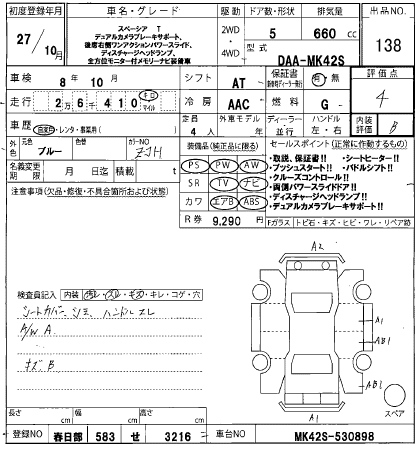 初度登録年月 車名・グレード 駆動 ドア数・形状 排気量 出品NO.
27/10月 スペーシア T 2WD・4WD 5 660 cc 138
デュアルカメラブレーキサポート、
後席右側ワンアクションパワースライド、
ディスチャージヘッドランプ、
全方位モニター付メモリナビ装着車
型式 DAA-MK42S
車検 8年 10月 シフト AT 保証書 有・無 評価点
走行 2万6千410 キロ マイル 冷房 AAC 燃料 G 4
車歴 自家用・レンタ・事業用( ) 定員 外車モデル ディーラー ハンドル 内装評価
4人 年 並行 左・右 B
外色 元色 ブルー 色替 カラーNO ZJH
装備品(純正品に限る) セールスポイント(正常に作動するもの)
名義変更期限 月 日迄 積載 t
PS PW AW
SR TV ナビ
カワ エアB ABS
・取説、保証書!! ・シートヒーター!!
・プッシュスタート!! ・パドルシフト!
・クルーズコントロール!!
・両側パワースライドドア!!
・ディスチャージヘッドランプ!!
・デュアルカメラブレーキサポート!!
注意事項(欠品・修復・不具合箇所および状態)
R券 9,290円 Fガラス トビ石・キズ・ヒビ・ワレ・リペア跡
A2
検査員記入 内装 汚レ・スレ・キズ・キレ・コゲ・穴
シートカバー シミ ハンドルスレ
A/W A
キズ B
A1
AB1
AB2
A1
スペア
長さ cm 幅 cm 高さ cm
登録NO 春日部 583 せ 3216 車台NO MK42S-530898